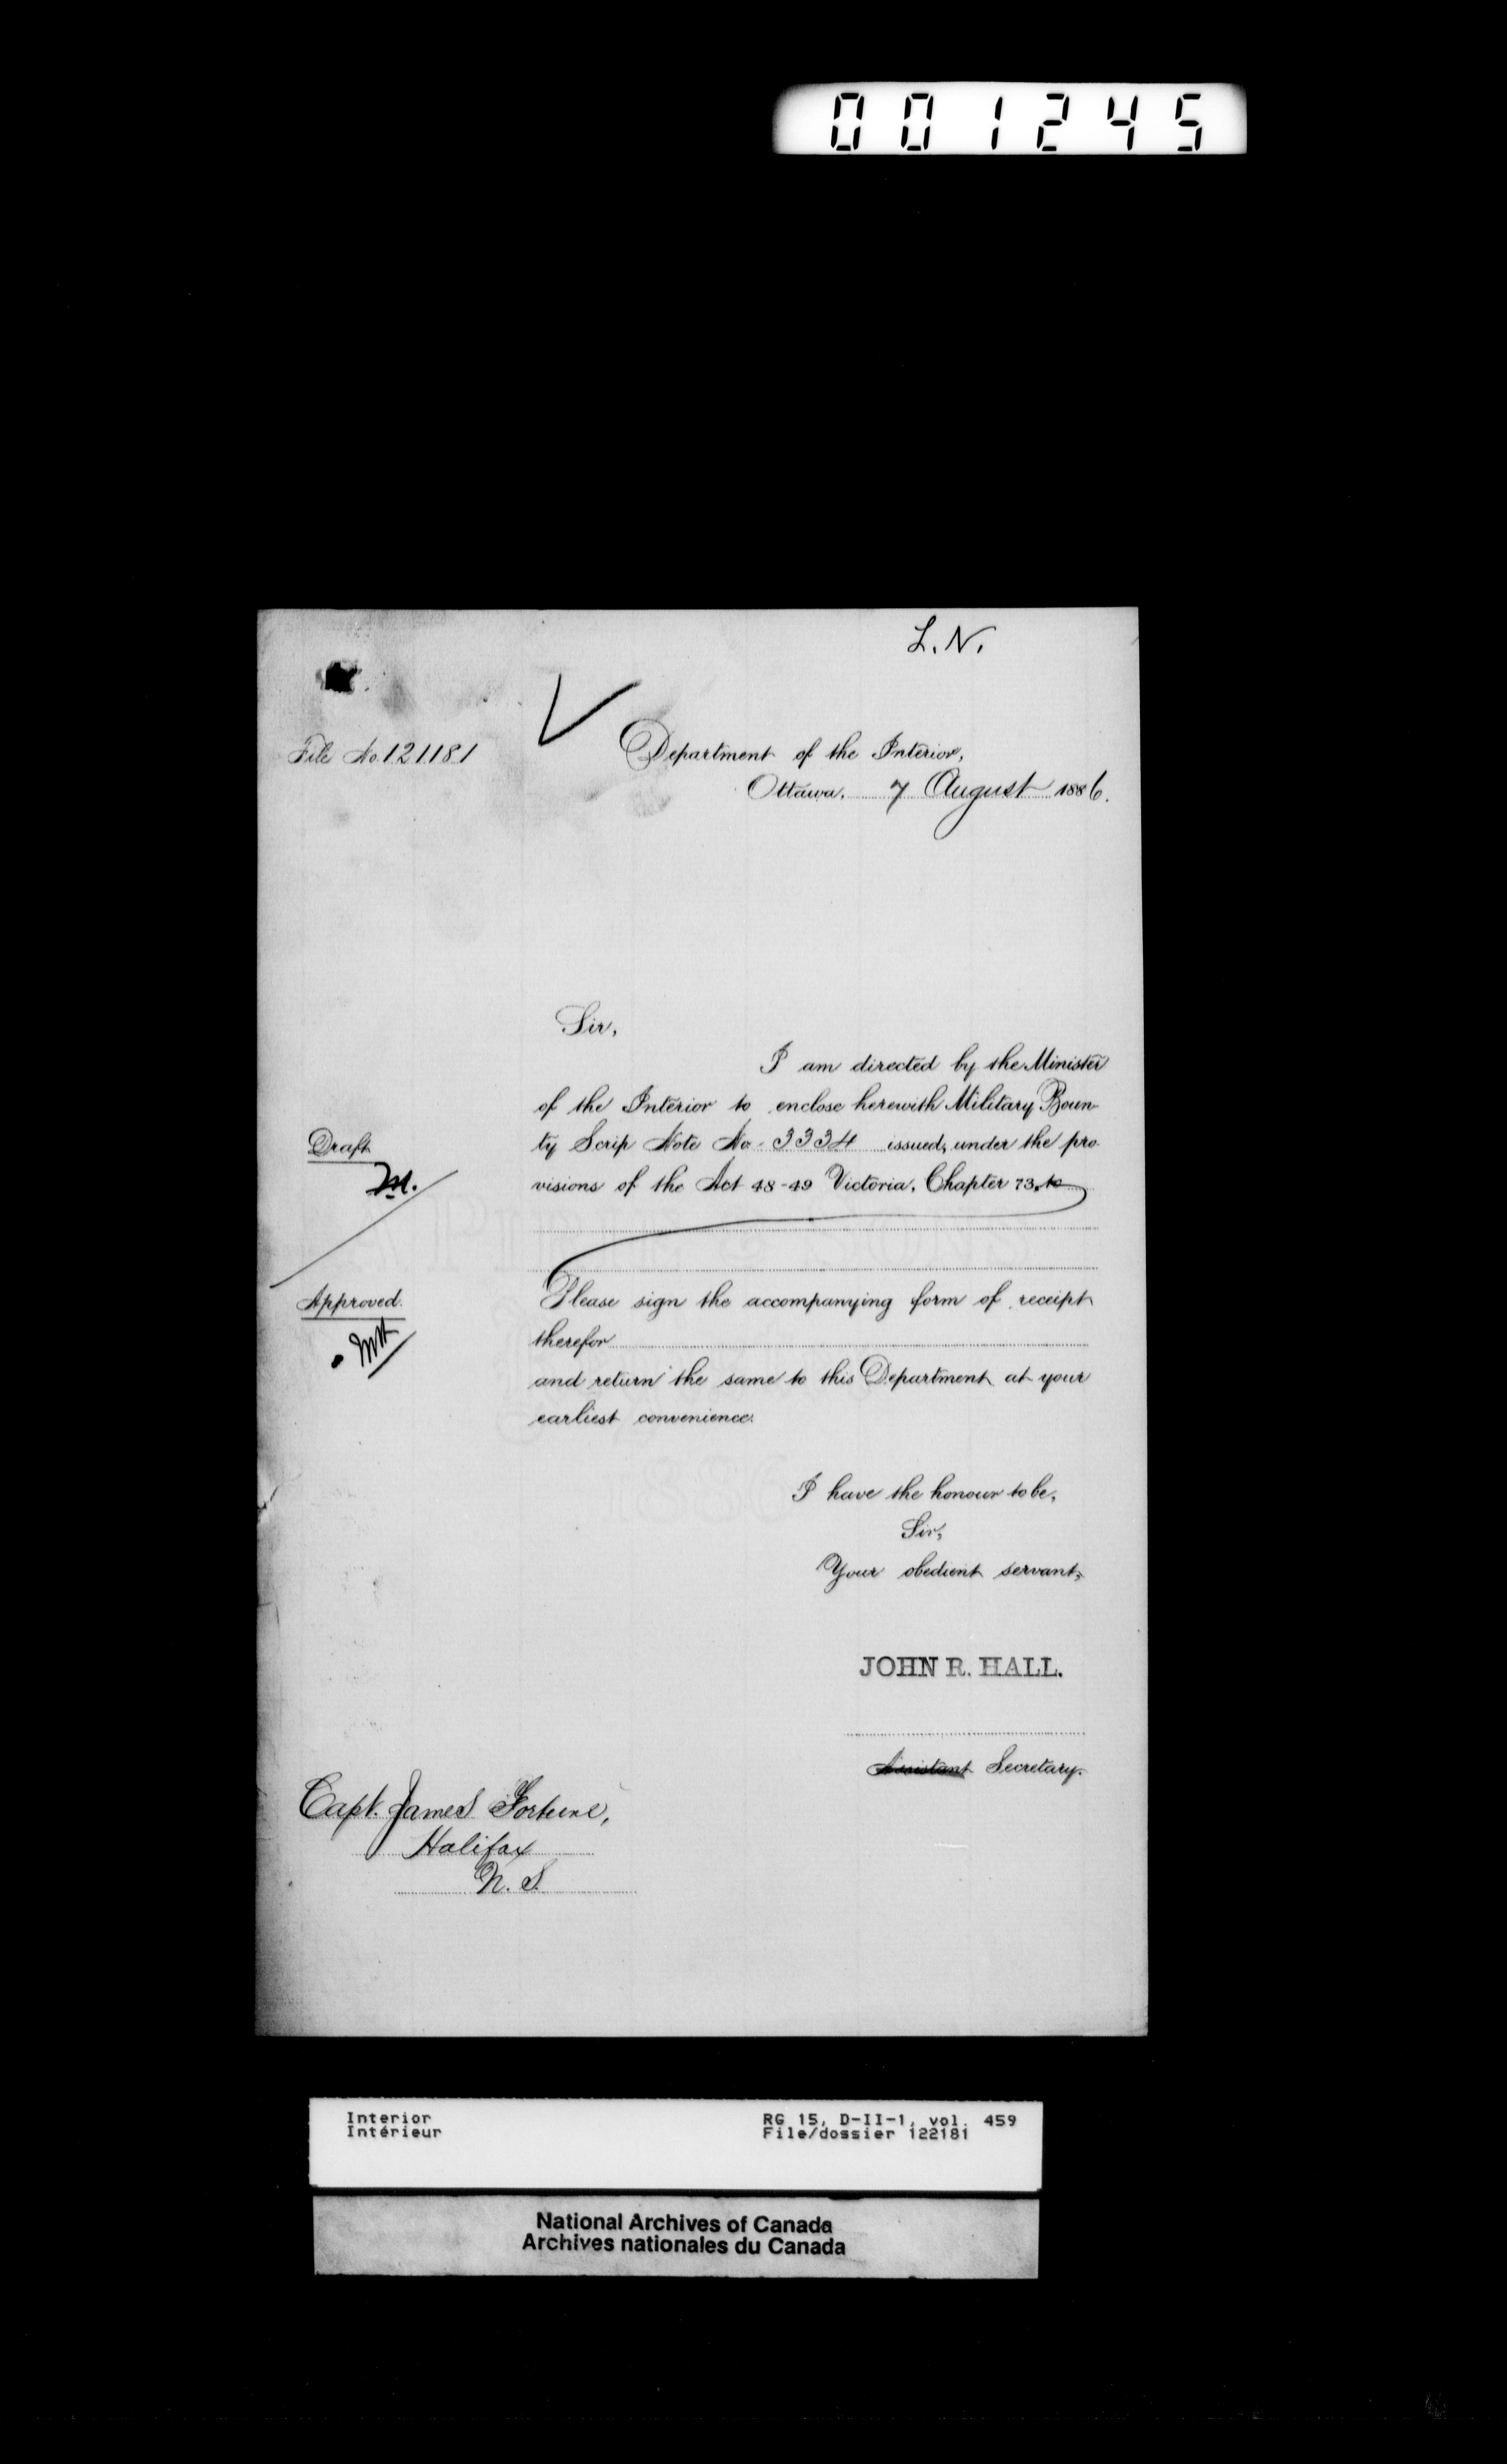 001245
L. N.
File No. 121181
Department of the Interior,
Ottawa, 7 August 1886.
Sir,
I am directed by the Minister
of the Interior to enclose herewith Military Boun-
ty Scrip Note No. 3334 issued, under the pro-
visions of the Act 48-49 Victoria, Chapter 73, to
Draft
M.
Approved.
Please sign the accompanying form of receipt
therefor
and return the same to this Department at your
earliest convenience.
I have the honour to be,
Sir,
Your obedient servant,
JOHN R. HALL.
Assistant Secretary.
Capt. James Fortune,
Halifax
N. S.
Interior
Intérieur
RG 15, D-II-1, vol. 459
File/dossier 122181
National Archives of Canada
Archives nationales du Canada